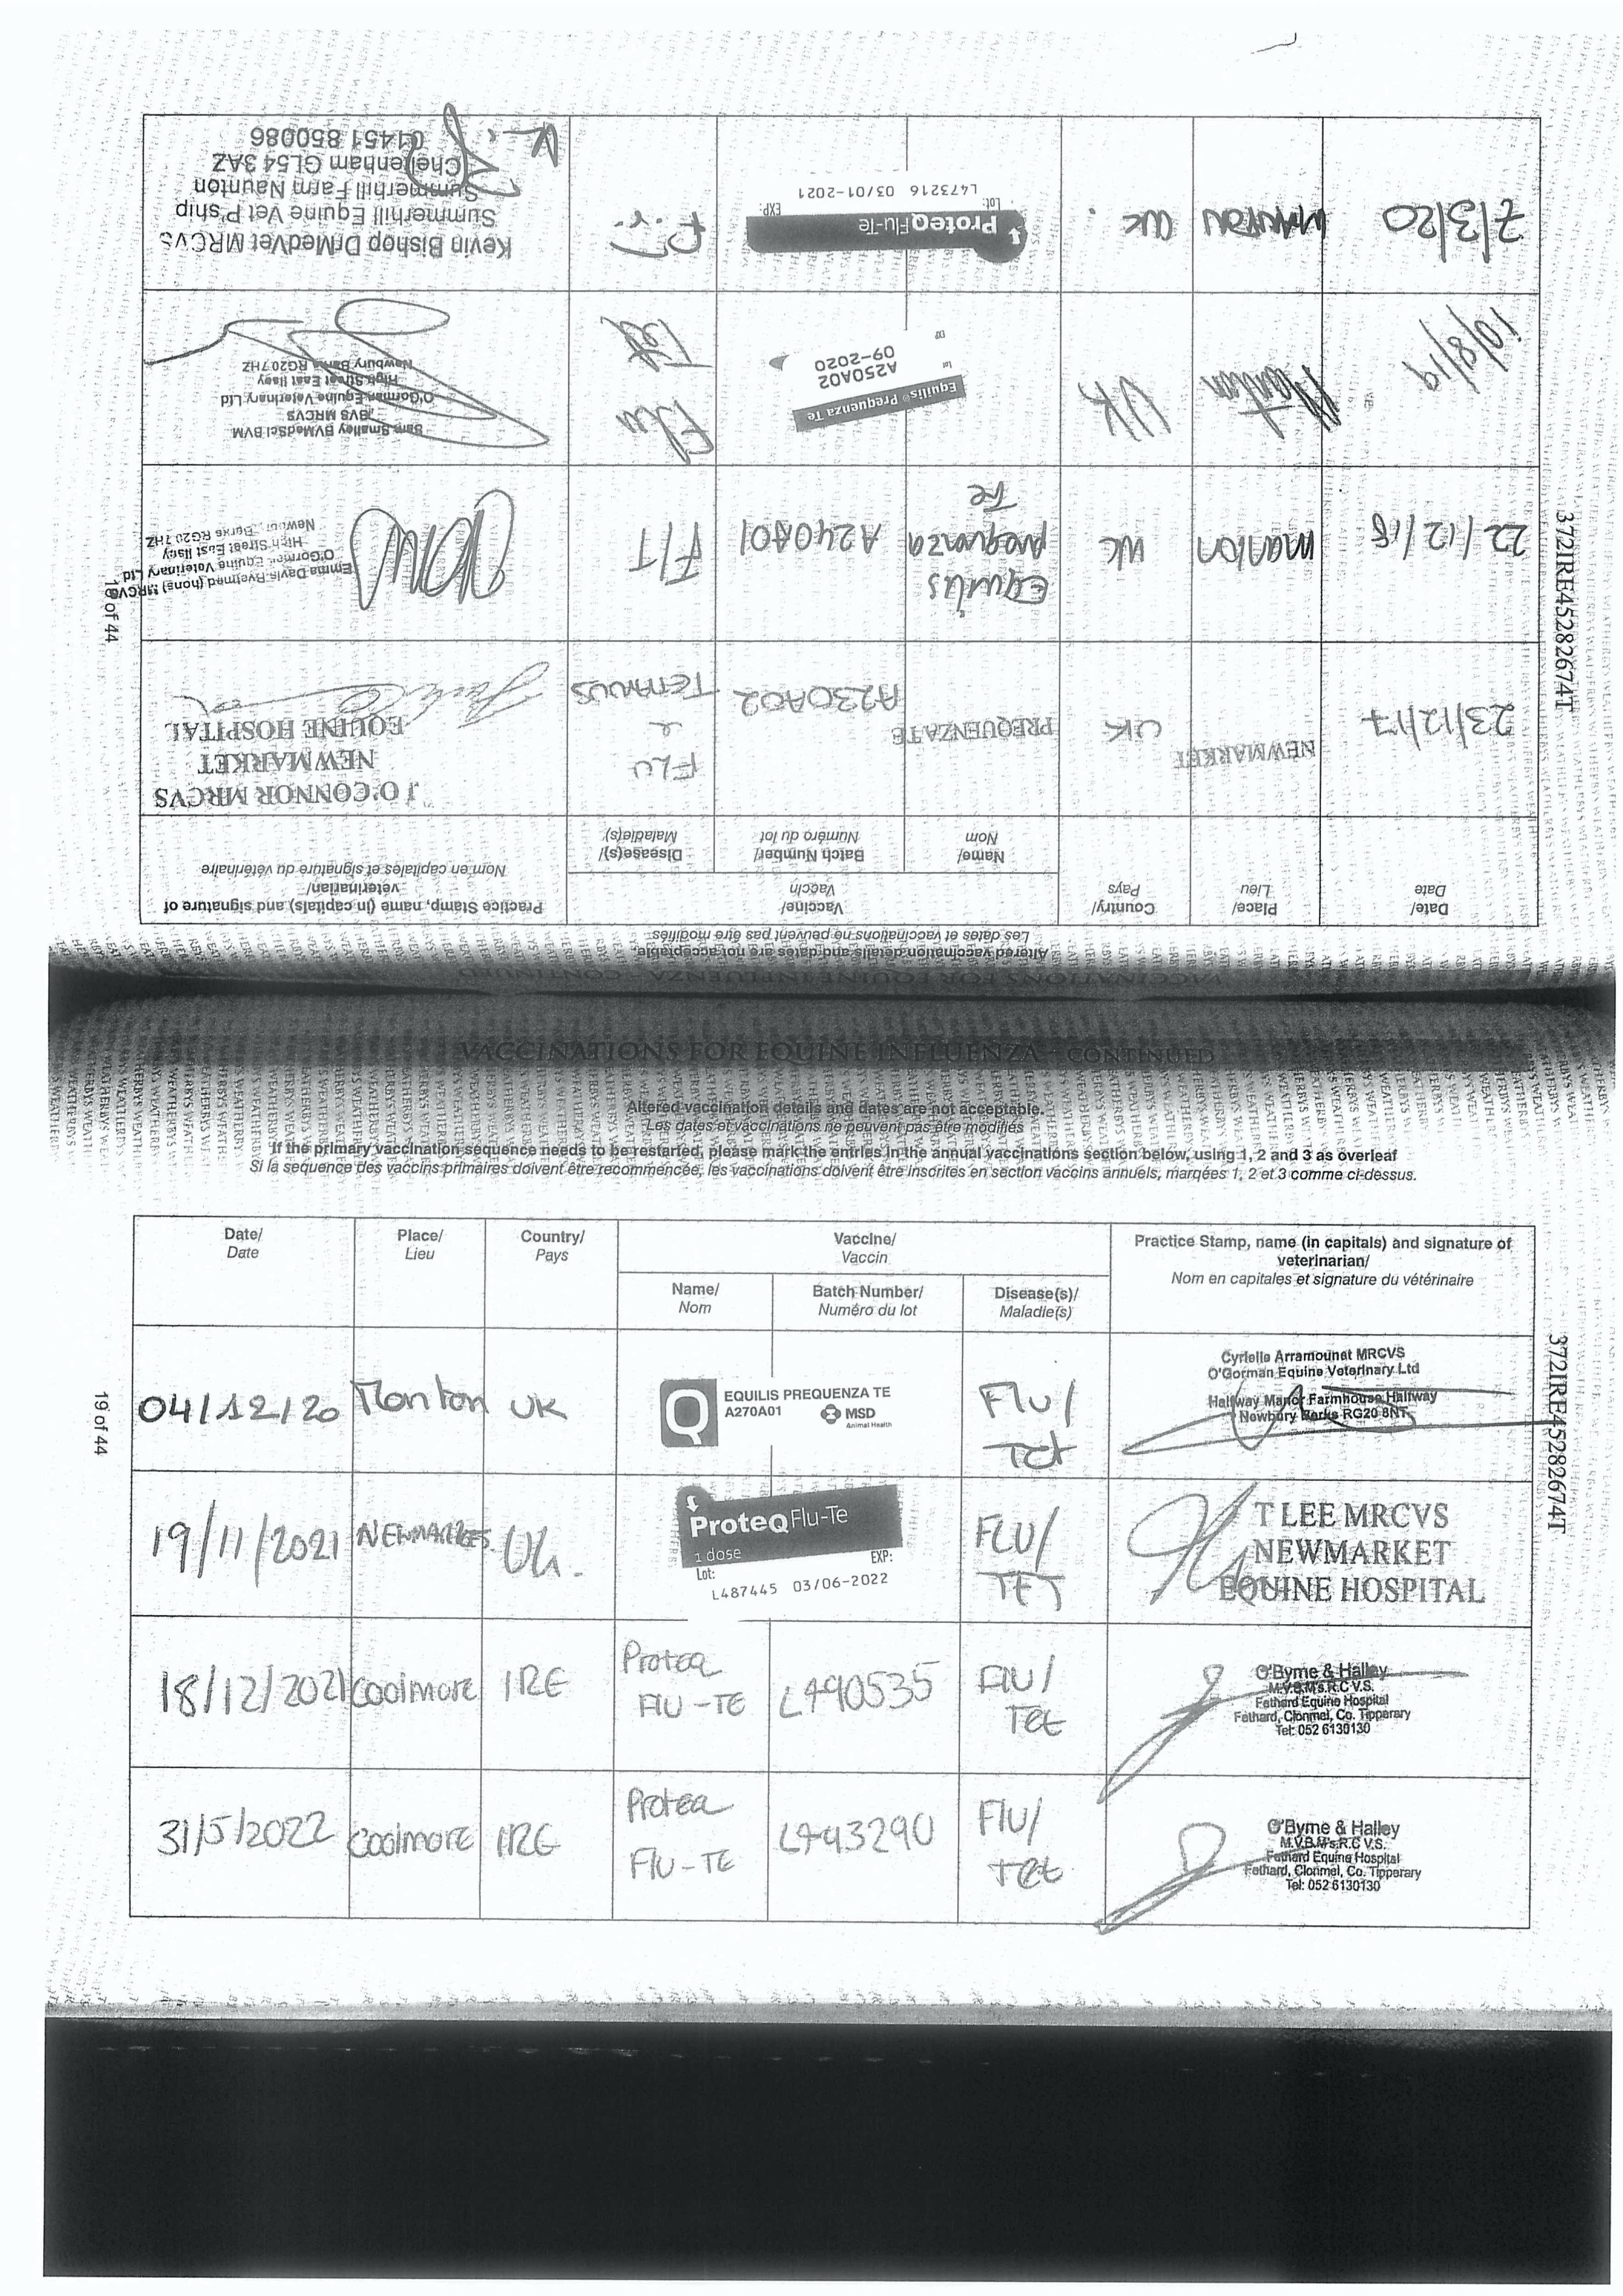 VACCINATIONS FOR EQUINE INFLUENZA - CONTINUED
Altered vaccination details and dates are not acceptable.
Les dates et vaccinations ne peuvent pas être modifiés
Date/
Date
Place/
Lieu
Country/
Pays
Vaccine/
Vaccin
Name/
Nom
Batch Number/
Numéro du lot
Disease(s)/
Maladie(s)
Practice Stamp, name (in capitals) and signature of
veterinarian/
Nom en capitales et signature du vétérinaire
23/12/17
NEWMARKET
UK
PREQUENZA TE
A230A02
FLU
&
TETANUS
J O'CONNOR MRCVS
NEWMARKET
EQUINE HOSPITAL
22/12/18
manton
UK
Equilis
prequenza
Te
A240A01
F/T
Emma Davis Bvetmed (hons) MRCVS
O'Gorman Equine Veterinary Ltd
High Street East Ilsley
Newbury Berks RG20 7HZ
10/8/19
Manton
UK
Equilis® Prequenza Te
Lot
A250A02
09-2020
EXP
Flu
Tet
Sam Smalley BVMedSci BVM
BVS MRCVS
O'Gorman Equine Veterinary Ltd
High Street East Ilsley
Newbury Berks RG20 7HZ
7/3/20
MANTON
UK.
ProteqFlu-Te
Lot:
EXP:
L473216 03/01-2021
Kevin Bishop DrMedVet MRCVS
Summerhill Equine Vet P'ship
Summerhill Farm Naunton
Cheltenham GL54 3AZ
01451 850086
372IRE45282674T
VACCINATIONS FOR EQUINE INFLUENZA - CONTINUED
Altered vaccination details and dates are not acceptable.
Les dates et vaccinations ne peuvent pas être modifiés
If the primary vaccination sequence needs to be restarted, please mark the entries in the annual vaccinations section below, using 1, 2 and 3 as overleaf
Si la sequence des vaccins primaires doivent être recommencée, les vaccinations doivent être inscrites en section vaccins annuels, marqées 1, 2 et 3 comme ci-dessus.
Date/
Date
Place/
Lieu
Country/
Pays
Vaccine/
Vaccin
Name/
Nom
Batch Number/
Numéro du lot
Disease(s)/
Maladie(s)
Practice Stamp, name (in capitals) and signature of
veterinarian/
Nom en capitales et signature du vétérinaire
04/12/20
Manton
UK
EQUILIS PREQUENZA TE
A270A01
MSD
Animal Health
Flu/
Tet
Cyrielle Arramounet MRCVS
O'Gorman Equine Veterinary Ltd
Halfway Manor Farmhouse Halfway
Newbury Berks RG20 8NT
19/11/2021
NEWMARKET
Uk.
ProteqFlu-Te
1 dose
Lot:
EXP:
L487445 03/06-2022
FLU/
TET
T LEE MRCVS
NEWMARKET
EQUINE HOSPITAL
18/12/2021
Coolmore
IRE
Proteq
Flu-TE
L490535
Flu/
Tet
O'Byrne & Halley
M.V.B.M's.R.C V.S.
Fethard Equine Hospital
Fethard, Clonmel, Co. Tipperary
Tel: 052 6130130
31/5/2022
Coolmore
IRE
Proteq
Flu-TE
L493290
Flu/
Tet
O'Byrne & Halley
M.V.B.M's.R.C V.S.
Fethard Equine Hospital
Fethard, Clonmel, Co. Tipperary
Tel: 052 6130130
19 of 44
372IRE45282674T